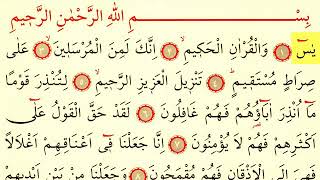 بِسْــــــمِ اللّٰهِ الرَّحْمٰنِ الرَّحٖيمِ
يٰسٓ ﴿١﴾ وَالْقُرْاٰنِ الْحَكٖيمِ ﴿٢﴾ اِنَّكَ لَمِنَ الْمُرْسَلٖينَ ﴿٣﴾ عَلٰى
صِرَاطٍ مُسْتَقٖيمٍ ﴿٤﴾ تَنْزٖيلَ الْعَزٖيزِ الرَّحٖيمِ ﴿٥﴾ لِتُنْذِرَ قَوْمًا
مَٓا اُنْذِرَ اٰبَٓاؤُ۬هُمْ فَهُمْ غَافِلُونَ ﴿٦﴾ لَقَدْ حَقَّ الْقَوْلُ عَلٰٓى
اَكْثَرِهِمْ فَهُمْ لَا يُؤْمِنُونَ ﴿٧﴾ اِنَّا جَعَلْنَا فٖٓي اَعْنَاقِهِمْ اَغْلَالًا
فَهِيَ اِلَى الْاَذْقَانِ فَهُمْ مُقْمَحُونَ ﴿٨﴾ وَجَعَلْنَا مِنْ بَيْنِ اَيْدٖيهِمْ